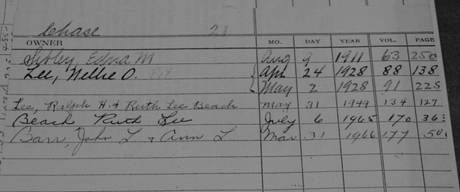 Lehase 21
OWNER MO. DAY YEAR VOL. PAGE
Sibley, Edna M Aug 9 1911 63 250
Lee, Nellie O. Apr 24 1928 88 138
May 2 1928 91 225
Lee, Ralph H. & Ruth Lee Beach May 31 1949 134 127
Beach Ruth Lee July 6 1965 170 363
Barr, John L & Ann L Mar 31 1966 177 50